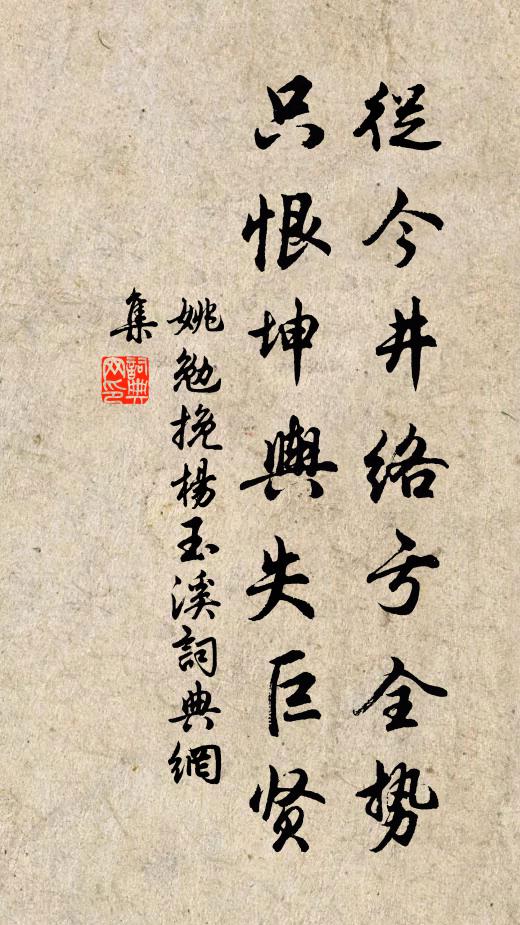 從今井络亏全势
只恨坤輿失巨贤
姚勉挽楊玉溪詞典網
集
詞典网印